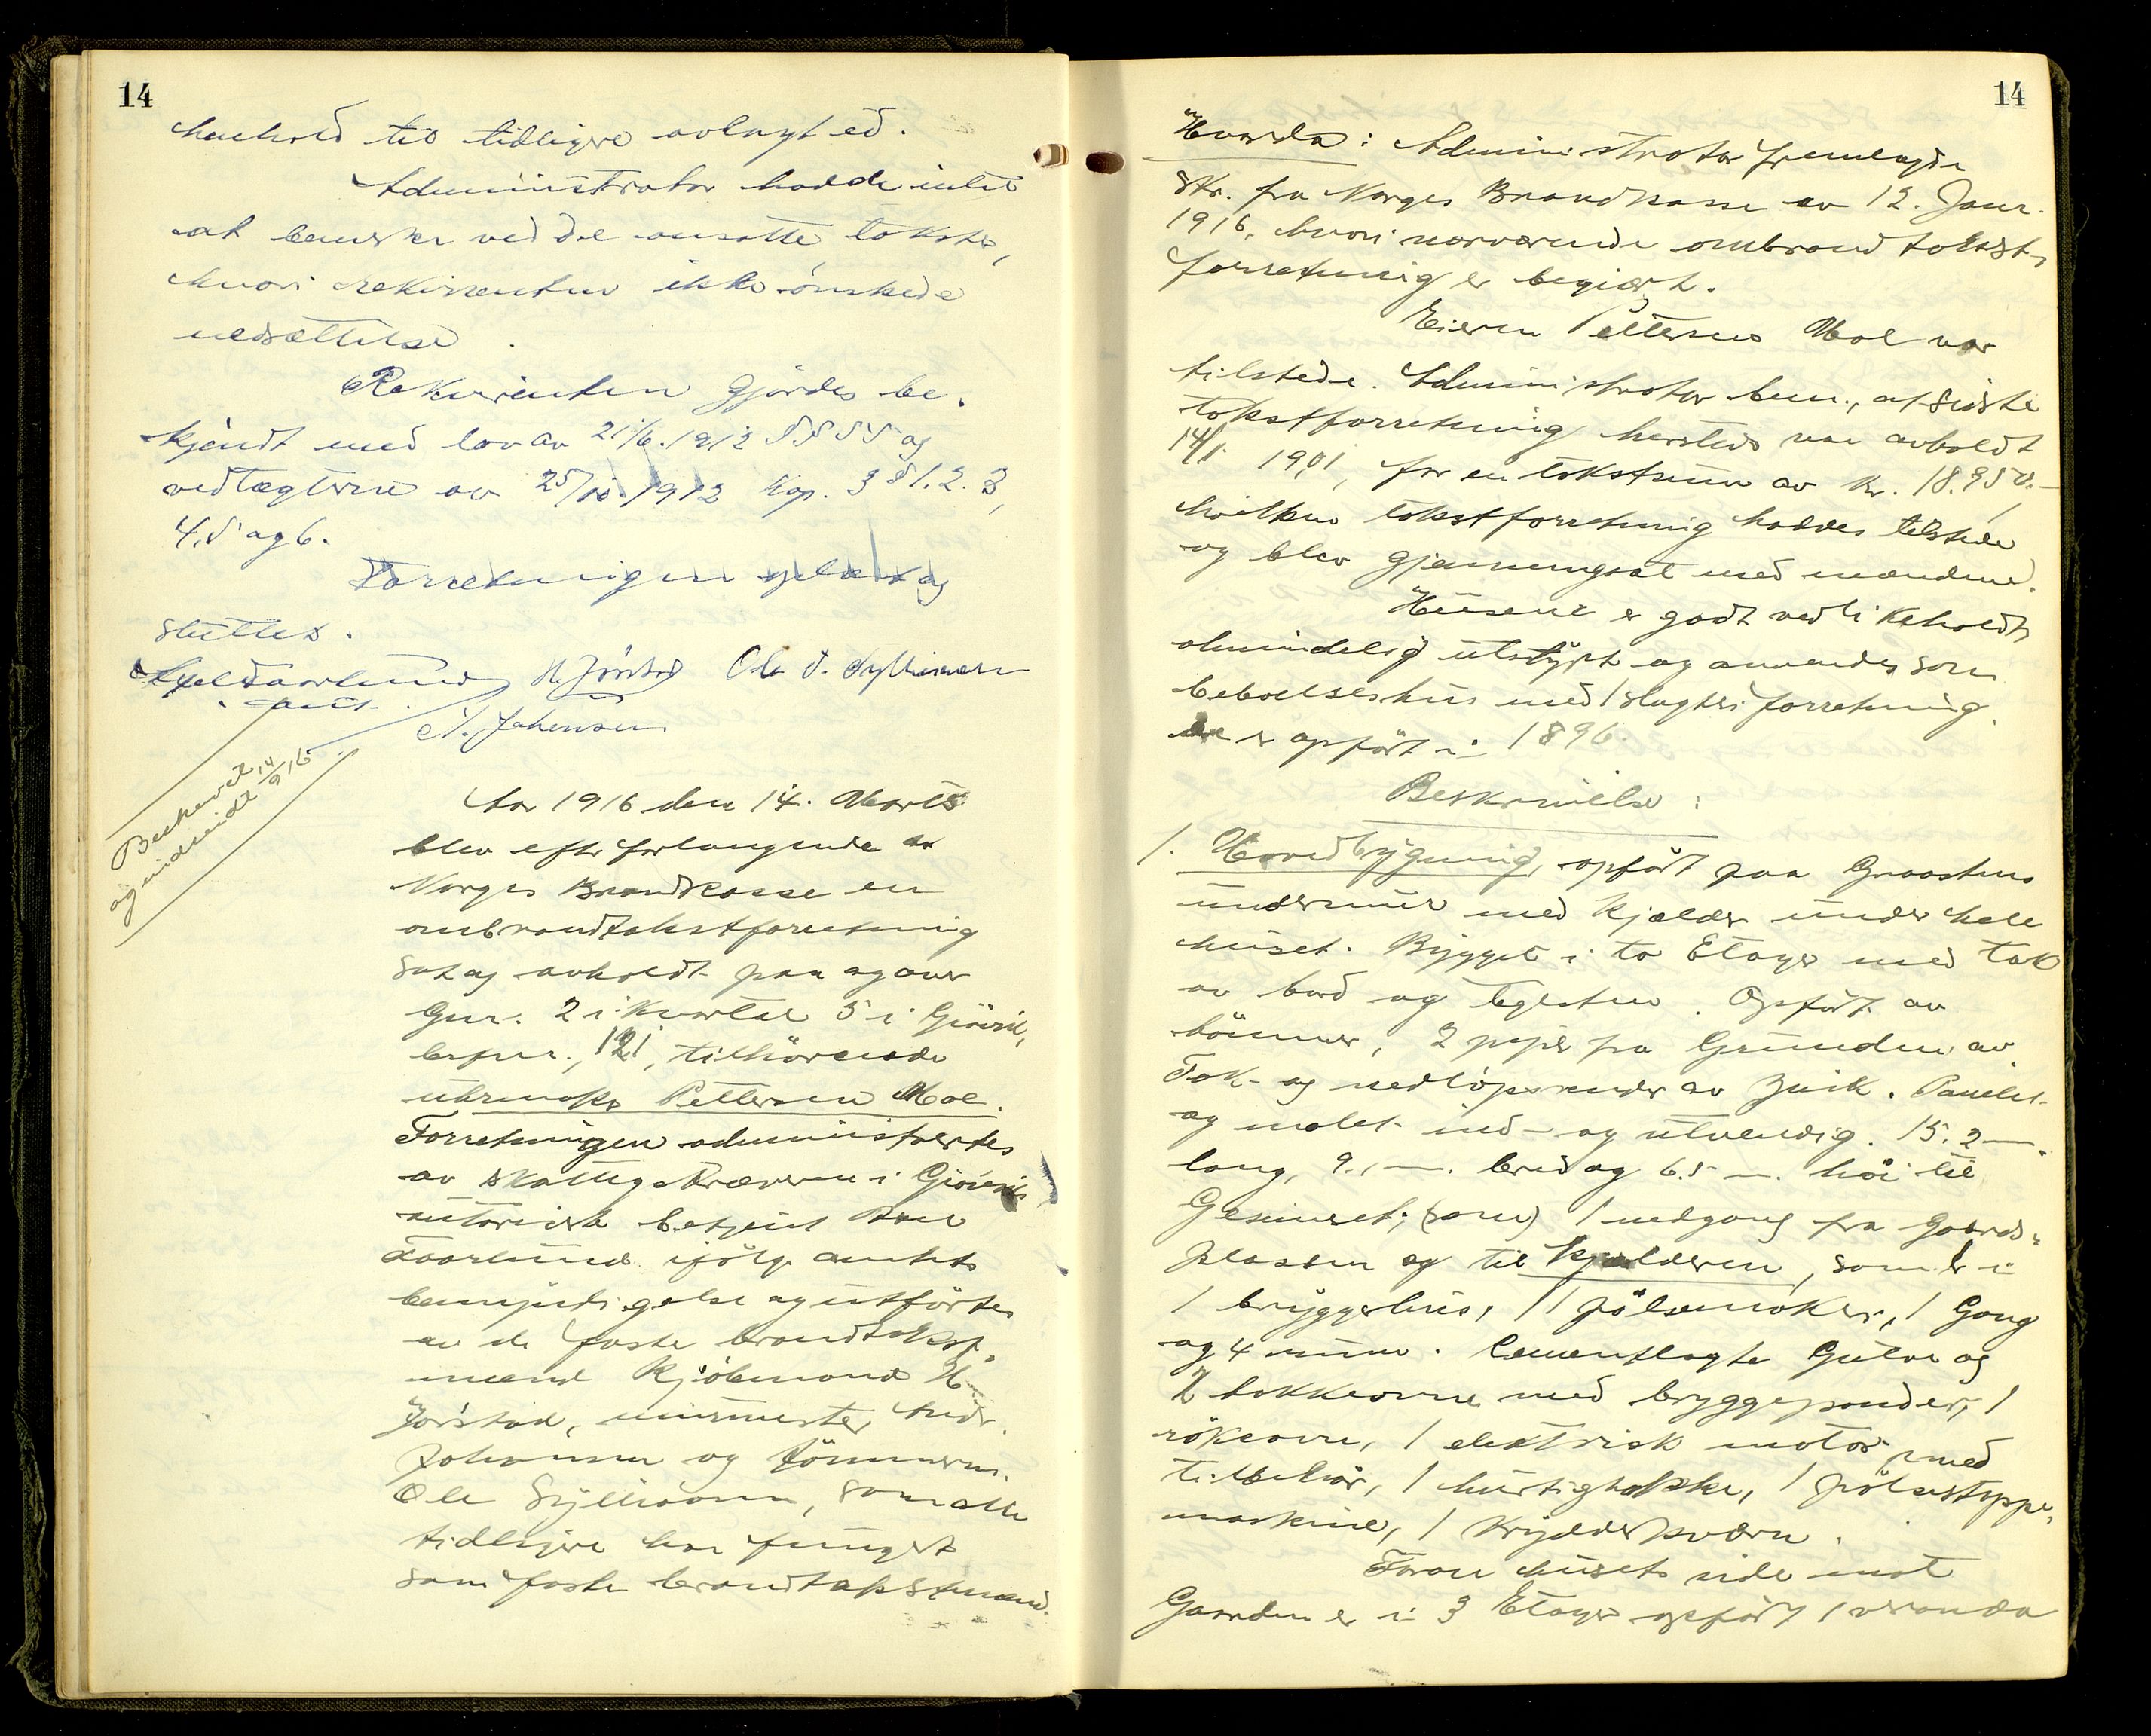 14
henhold til tidligere avlagt ed.
Administrator hadde intet
at bemerke ved de ansatte takster,
hvori rekvirenten ikke ønskede
nedsættelse.
Rekvirenten gjördes be-
kjendt med lov av 21/6. 1912 § og
vedtægterne av 25/10. 1912 Kap. 3 § 1. 2. 3,
4, 5 og 6.
Forretningen oplæst og
sluttet.
Axel Faarlund H. Jörstad Ole O. Syllivaasen
aut. A. Johansen
Beskrevet 14/9 16
og utsendt
Aar 1916 den 14. Marts
blev efter forlangende av
Norges Brandkasse en
ombrandtakstforretning
sat og avholdt paa og over
Gnr. 2 i Kvartal 5 i Gjövik,
bspnr. 121, tilhörende
urmaker Pettersen Moe.
Forretningen administrertes
av skattefogderie i Gjöviks
autoriserte betjent Axel
Faarlund ifölge amtets
bemyndigelse og utförtes
av de faste brandtakst-
mænd Kjöbmand H.
Jörstad, murmester Andr.
Johansen og tömmerm.
Ole Syllivaasen, som alle
tidligere har fungert
som faste brandtakstmænd.
14
Hvorda: Administrator fremlagde
skr. fra Norges Brandkasse av 12. Janr.
1916, hvori nærværende ombrandtakst-
forretning er begjært.
Eieren Pettersen Moe var
tilstede. Administrator bem., at sidste
takstforretning hersteds var avholdt
14/1 1901, for en takstsum av kr. 18.950.-
hvilken takstforretning haddes tilstede
og blev gjennemgaat med mændene.
Husene er godt vedlikeholdt,
almindelig utstyrt og anvendes som
beboelseshus med slagteriforretning.
De er opfört i 1896.
Beskrivelse:
1. Hovedbygning, opfört paa Graastens
undermur med kjælder under hele
huset. Bygget i to Etager med tak
av bord og teglsten. Opfört av
tömmer, 2 piper fra Grunden av
Tak- og nedlöpsrender av zink. Panelet
og malet ind- og utvendig. 15.2 m.
lang, 9.1 m. bred og 6.5 m. höi til
Gesimset; 1 nedgang fra Gaards-
plassen og til kjælderen, som er i
1 bryggerhus, 1 pölsemakeri, 1 Gang
og 4 rum. Cementlagte Gulve og
2 bakkeovne med bryggepander, 1
rökeovn, 1 elektrisk motor med
tilbehör, 1 hurtighakke, 1 pölsestoppe-
maskine, 1 krydderkværn.
Foran husets side mot
Gaarden er i 3 Etager opfört 1 veranda